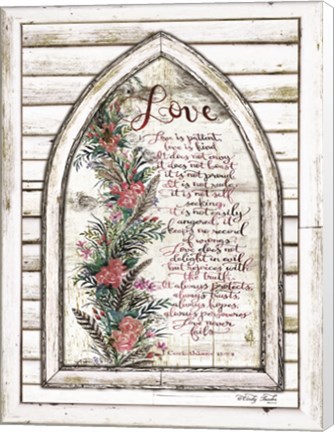 Love
Love is patient,
love is kind.
It does not envy,
it does not boast,
it is not proud.
It is not rude,
it is not self
seeking,
it is not easily
angered, it
keeps no record
of wrongs.
Love does not
delight in evil
but rejoices with
the truth.
It always protects,
always trusts,
always hopes,
always perseveres
Love never
fails
1 Corinthians